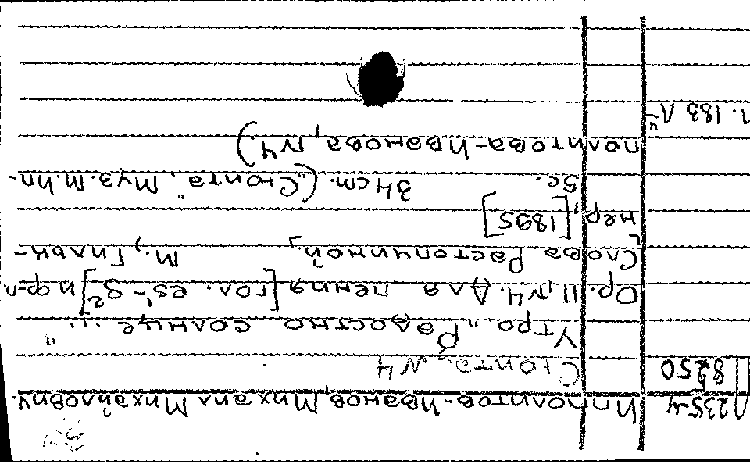 Л235-4 Ипполитов-Иванов, Михаил Михайлович.
18250 Сюита, №4
Утро „Радостно солнце..."
Op. 11, №4. Для пения [гол. es¹-g²] и ф-п.
Слова Растопчиной]. М., Гильи-
нер, [1895]
5с. 34 cm. („Сюита". Муз. М. Ип-
политова-Иванова, №4)
1. 183 Л